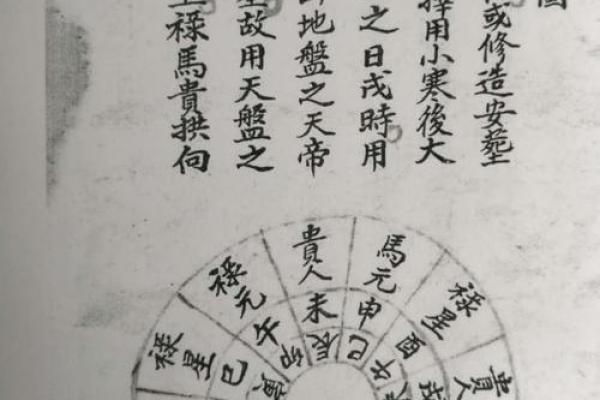 或修造安塟
擇用小寒後大
之日戌時用
地盤之天帝
故用天盤之
祿馬貴拱向
祿星
祿元
貴人
馬元
祿星
貴人
巳
午
未
申
酉
寅
卯
辰
巳
午